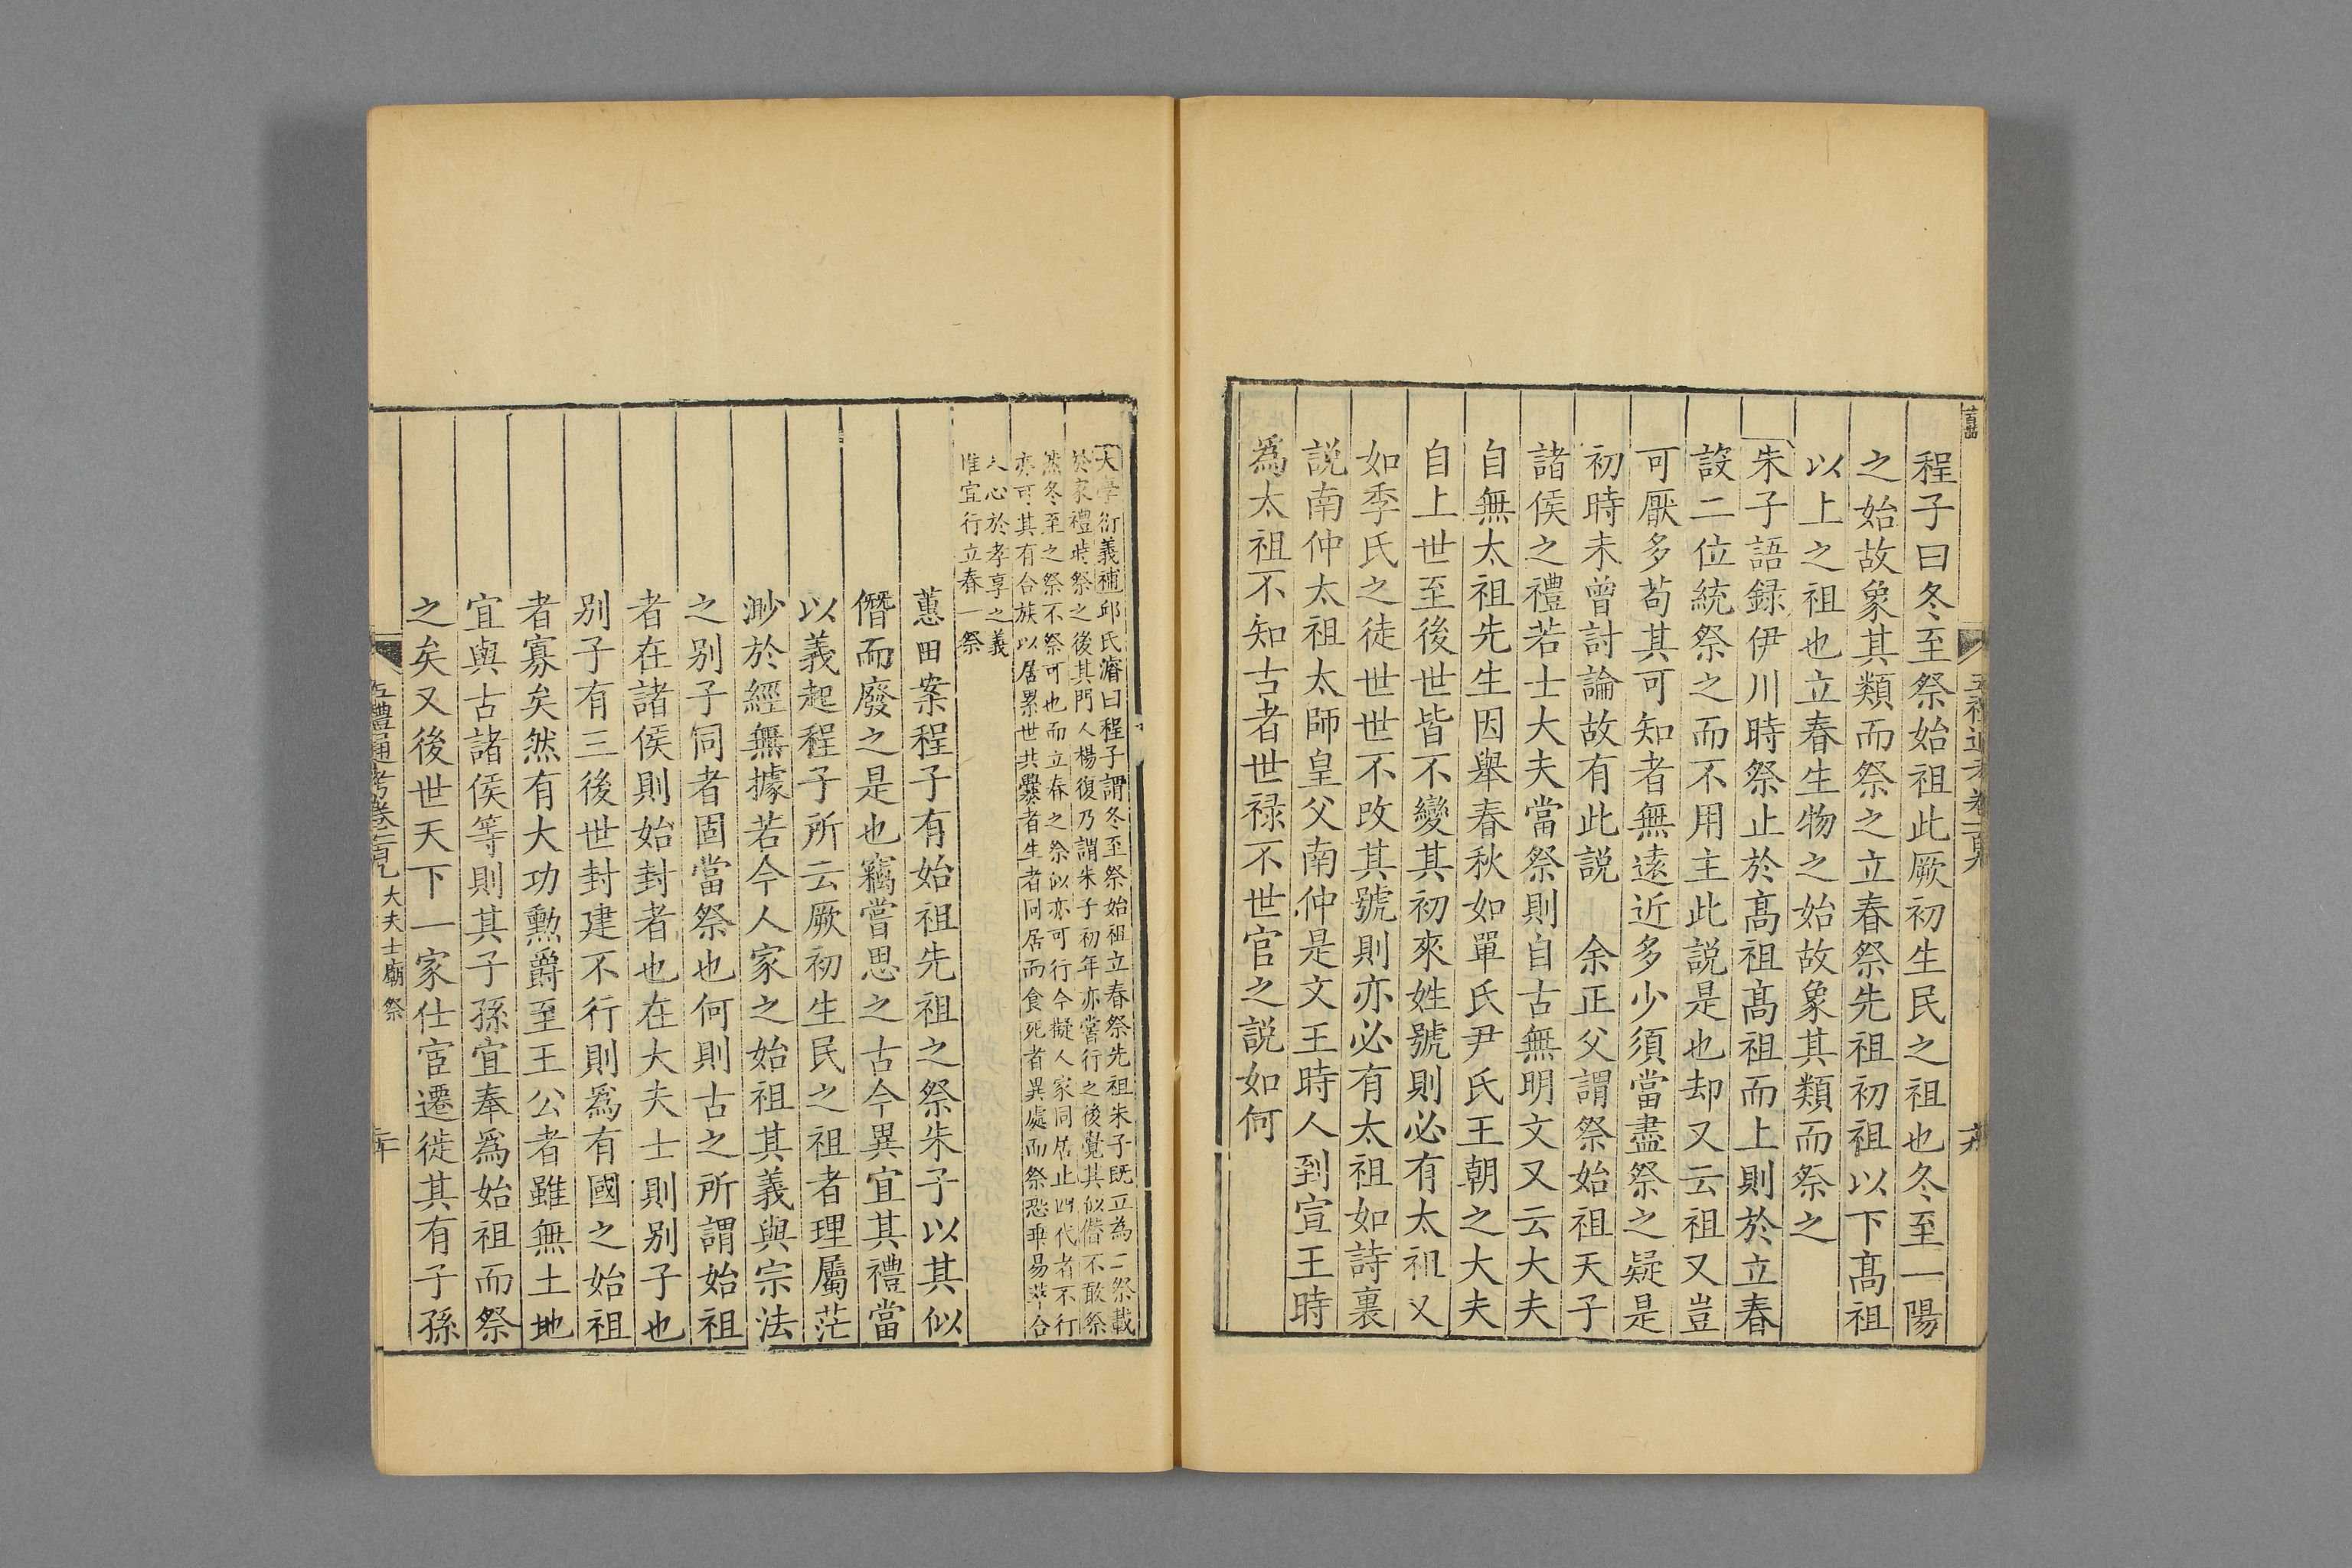 程子曰冬至祭始祖此厥初生民之祖也冬至一陽
之始故象其類而祭之立春祭先祖初祖以下髙祖
以上之祖也立春生物之始故象其類而祭之
朱子語録伊川時祭止於髙祖髙祖而上則於立春
設二位統祭之而不用主此説是也却又云祖又豈
可厭多苟其可知者無遠近多少須當盡祭之疑是
初時未曾討論故有此説　余正父謂祭始祖天子
諸侯之禮若士大夫當祭則自古無明文又云大夫
自無太祖先生因舉春秋如單氏尹氏王朝之大夫
自上世至後世皆不變其初來姓號則必有太祖又
如季氏之徒世世不改其號則亦必有太祖如詩裏
説南仲太祖太師皇父南仲是文王時人到宣王時
為太祖不知古者世禄不世官之説如何
大學衍義補邱氏濬曰程子謂冬至祭始祖立春祭先祖朱子既立為二祭載
於家禮時祭之後其門人楊復乃謂朱子初年亦嘗行之後覺其似僭不敢祭
然冬至之祭不祭可也而立春之祭似亦可行今擬人家同居止四代者不行
亦可其有合族以居累世共爨者生者同居而食死者異處而祭恐乖易萃合
人心於孝享之義
惟宜行立春一祭
蕙田案程子有始祖先祖之祭朱子以其似
僭而廢之是也竊嘗思之古今異宜其禮當
以義起程子所云厥初生民之祖者理屬茫
渺於經無據若今人家之始祖其義與宗法
之别子同者固當祭也何則古之所謂始祖
者在諸侯則始封者也在大夫士則别子也
别子有三後世封建不行則為有國之始祖
者寡矣然有大功勲爵至王公者雖無土地
宜與古諸侯等則其子孫宜奉為始祖而祭
之矣又後世天下一家仕宦遷徙其有子孫
五禮通考卷一百九　大夫士廟祭